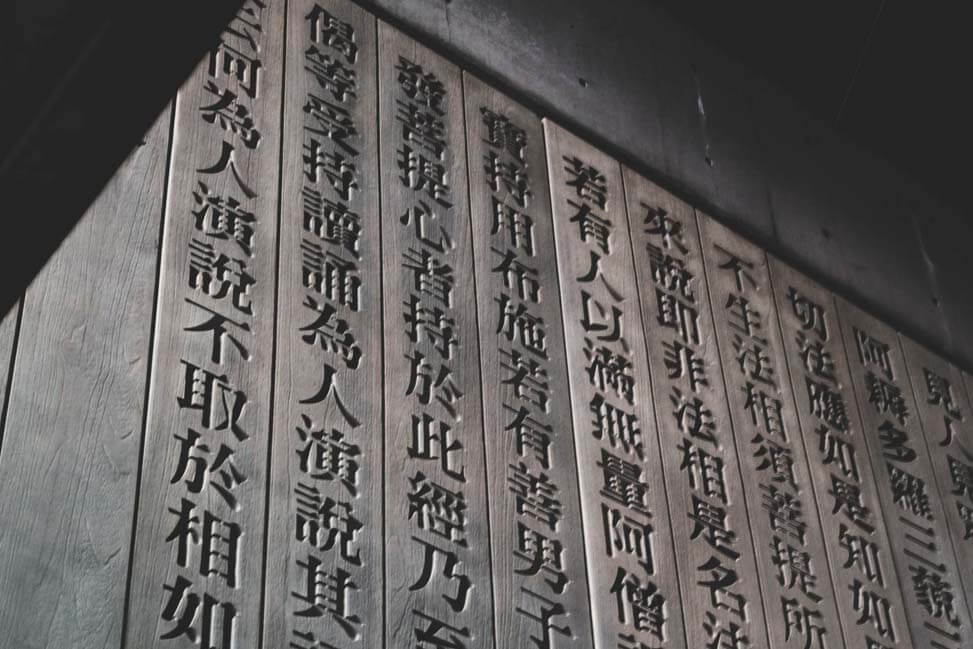 見人見
阿耨多羅三藐三
切法應如是知如
不生法相須菩提所
來說即非法相是名法
若有人以滿無量阿僧
寶持用布施若有善男子
發菩提心者持於此經乃至
偈等受持讀誦為人演說其
云何為人演說不取於相如